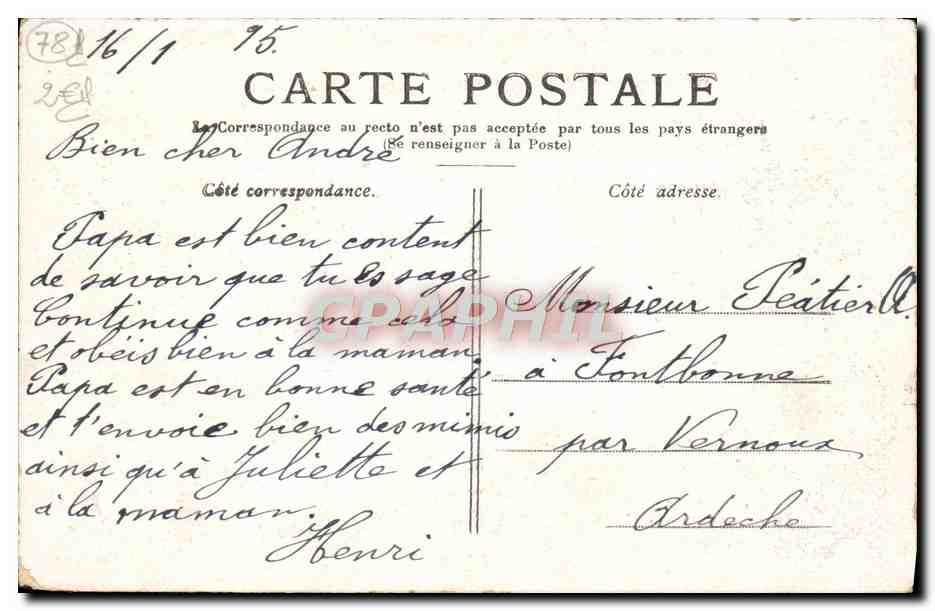 78
16/1 15.
2€
CARTE POSTALE
La Correspondance au recto n'est pas acceptée par tous les pays étrangers
(Se renseigner à la Poste)
Bien cher André
Côté correspondance.
Côté adresse.
Papa est bien content
de savoir que tu es sage
Continue comme cela
et obéis bien à la maman.
Papa est en bonne santé
et t'envoie bien des mimis
ainsi qu'à Juliette et
à la maman.
Henri
CPAPHIL
Monsieur Péatier A.
à Fontbonne
par Vernoux
Ardèche